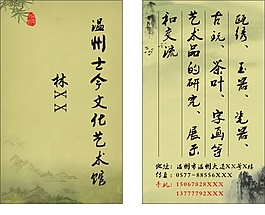 温州士今文化艺术馆
林XX
瓯绣、玉器、瓷器、
古玩、茶叶、字画等
艺术品的研究、展示
和交流
地址：温州市温州大道XX号X楼
传真：0577-88556XXX
手机：15067828XXX
13777792XXX